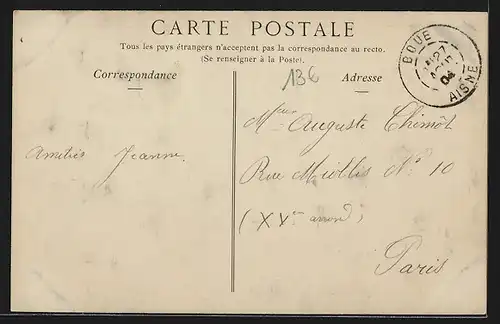 CARTE POSTALE
Tous les pays étrangers n'acceptent pas la correspondance au recto.
(Se renseigner à la Poste).
Correspondance
Adresse
136
BOUE
27
AOUT
04
AISNE
Auguste Thimot
Rue Miollis No 10
(XVe arrond)
Paris
Amitiés Jeanne